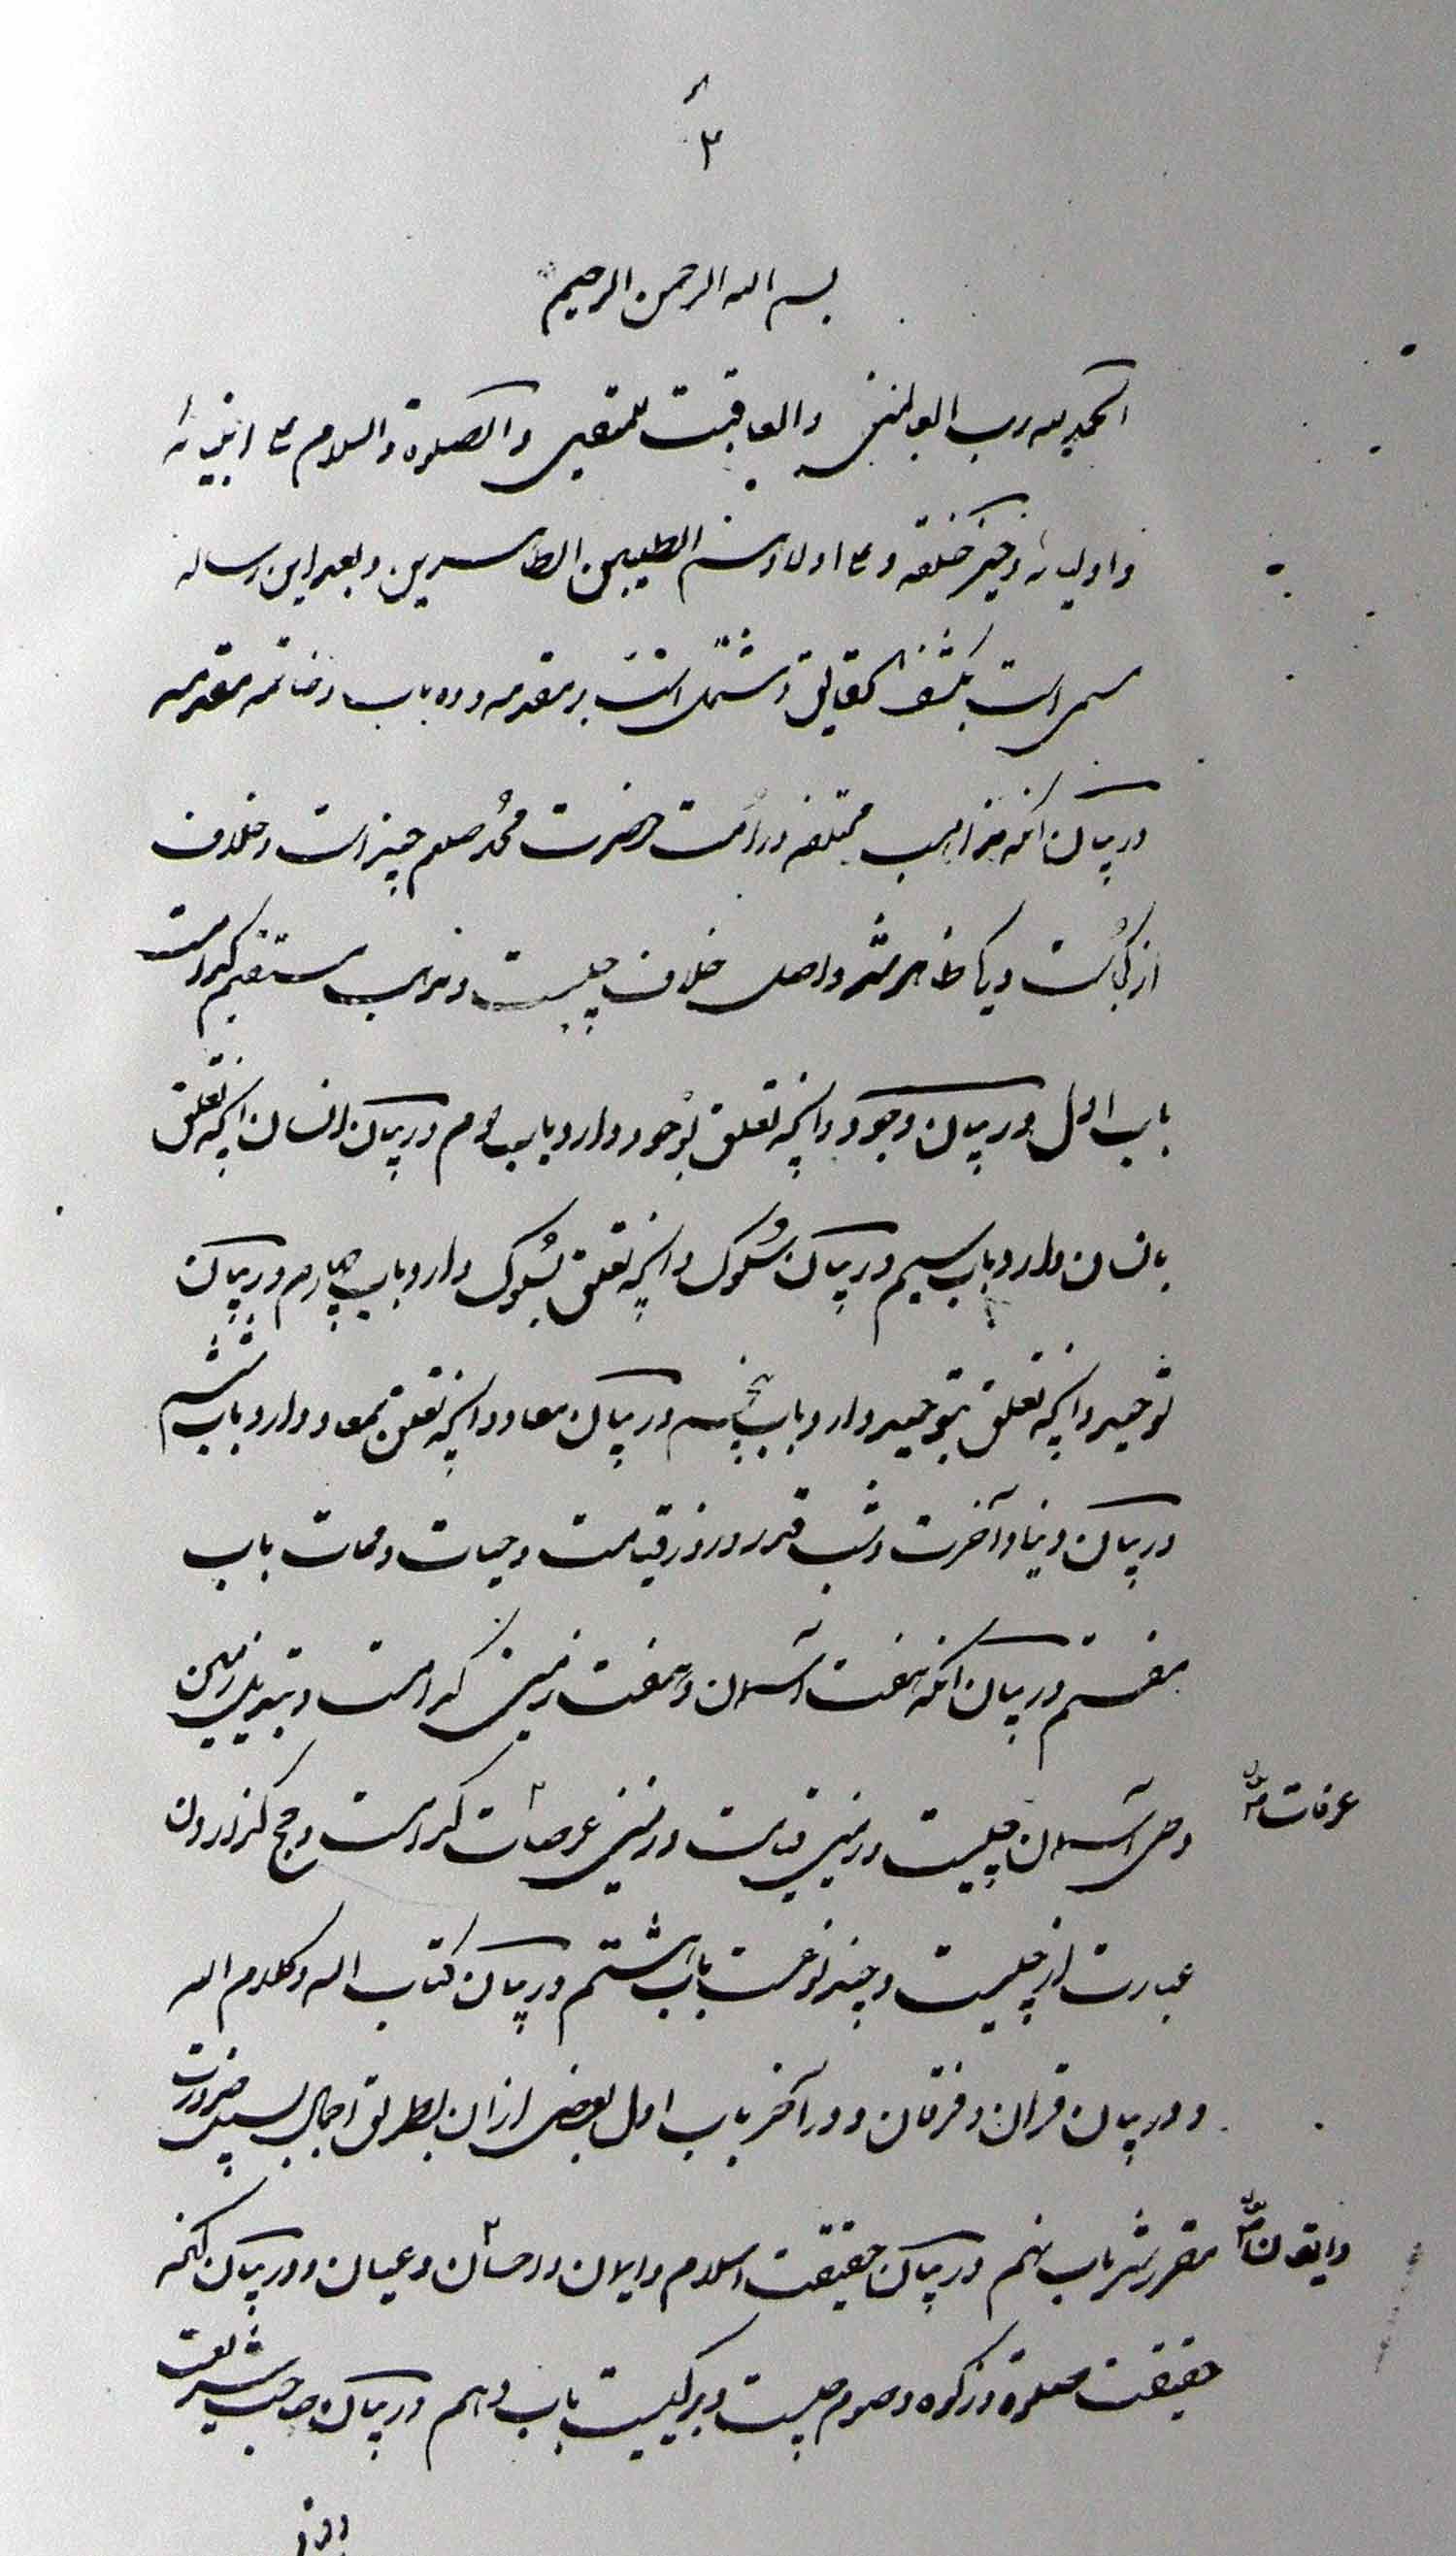 ٢
بسم الله الرحمن الرحیم
الحمد لله رب العالمین والعاقبت للمتقین والصلوة والسلام علی انبیائه
واولیائه وخیر خلقه وعلی اولادهم الطیبین الطاهرین وبعد این رساله
مسمی است بکشف الحقایق ومشتمل است بر مقدمه وده باب وخاتمه مقدمه
در بیان انکه مذاهب مختلفه در امت حضرت محمد صلعم چیزاست وخلاف
از کجاست وبکجا ظاهر شد واصل خلاف چیست ومذهب مستقیم کدامست
باب اول در بیان وجود وانچه تعلق بوجود دارد باب دوم در بیان انسان انچه تعلق
بانسان دارد باب سیم در بیان سلوک وانچه تعلق بسلوک دارد باب چهارم در بیان
توحید وانچه تعلق بتوحید دارد باب پنجم در بیان معاد وانچه تعلق بمعاد دارد باب ششم
در بیان دنیا وآخرت وشب قدر وروز قیامت وحیات وممات باب
هفتم در بیان انکه هفت آسمان وهفت زمین کدامست وتبدیل زمین
وطی آسمان چیست وزمین قیامت وزمین عرصات کدامست وحج گزاردن
عرفات
عبارت از چیست وچند نوعست باب هشتم در بیان کتاب الله وکلام الله
و در بیان قران وفرقان و در آخر باب اول بعضی از ان بطریق اجمال بسبیل ضرورت
مقرر شد باب نهم در بیان حقیقت اسلام وایمان واحسان وعیان و در بیان انکه
وایقون
حقیقت صلوة وزکوة وصوم چیست وبر کیست باب دهم در بیان صاحب شریعت